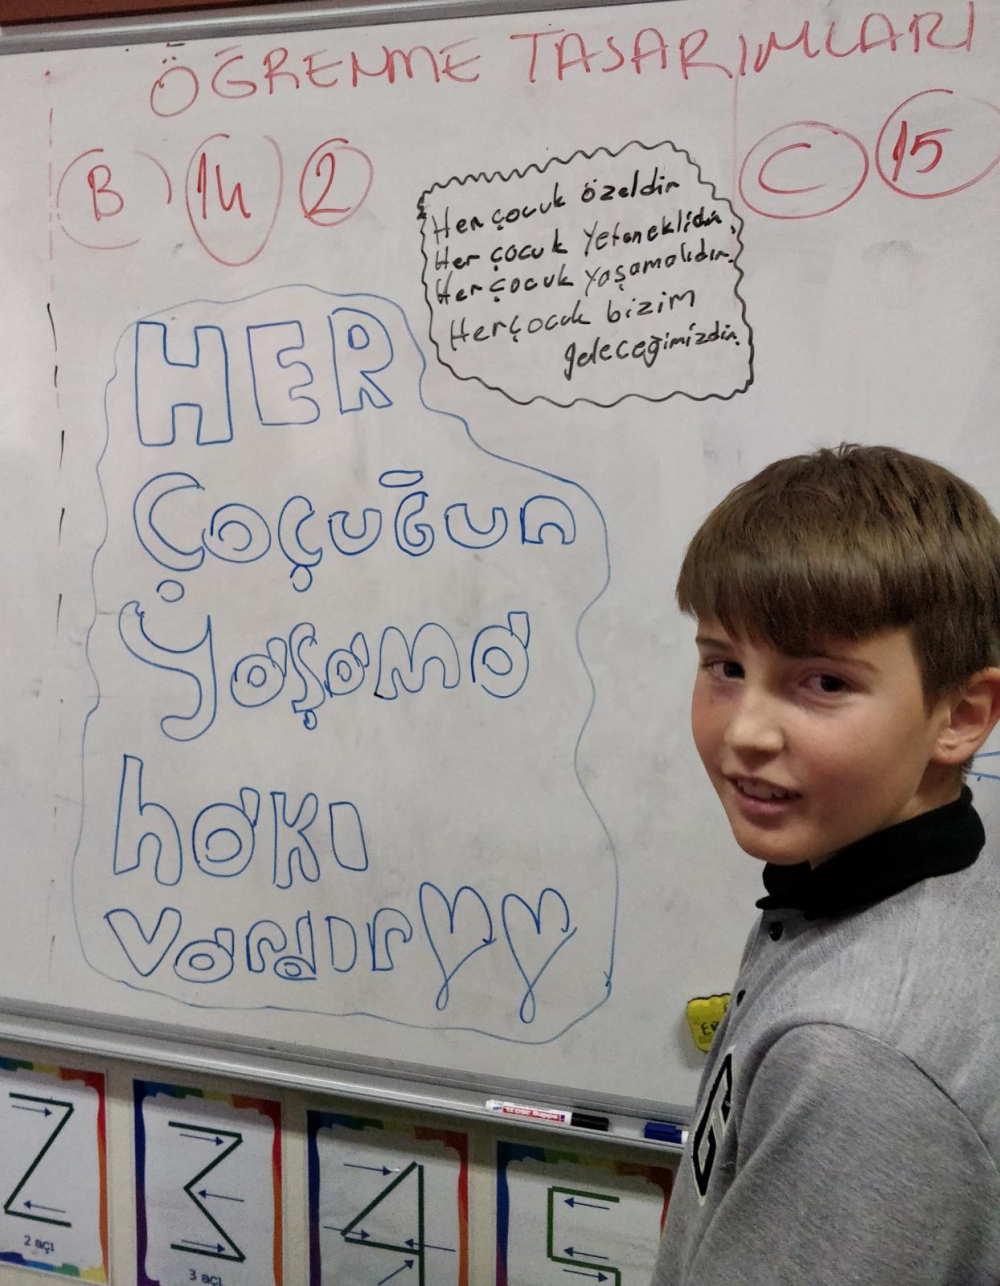 ÖĞRENME TASARIMLARI
B 14 2
C 15
Her çocuk özeldir
Her çocuk yeteneklidir.
Her çocuk yaşamalıdır.
Her çocuk bizim
geleceğimizdir.
HER
Çoçuğun
Yaşama
hakı
Vardır
2 açı
3 açı